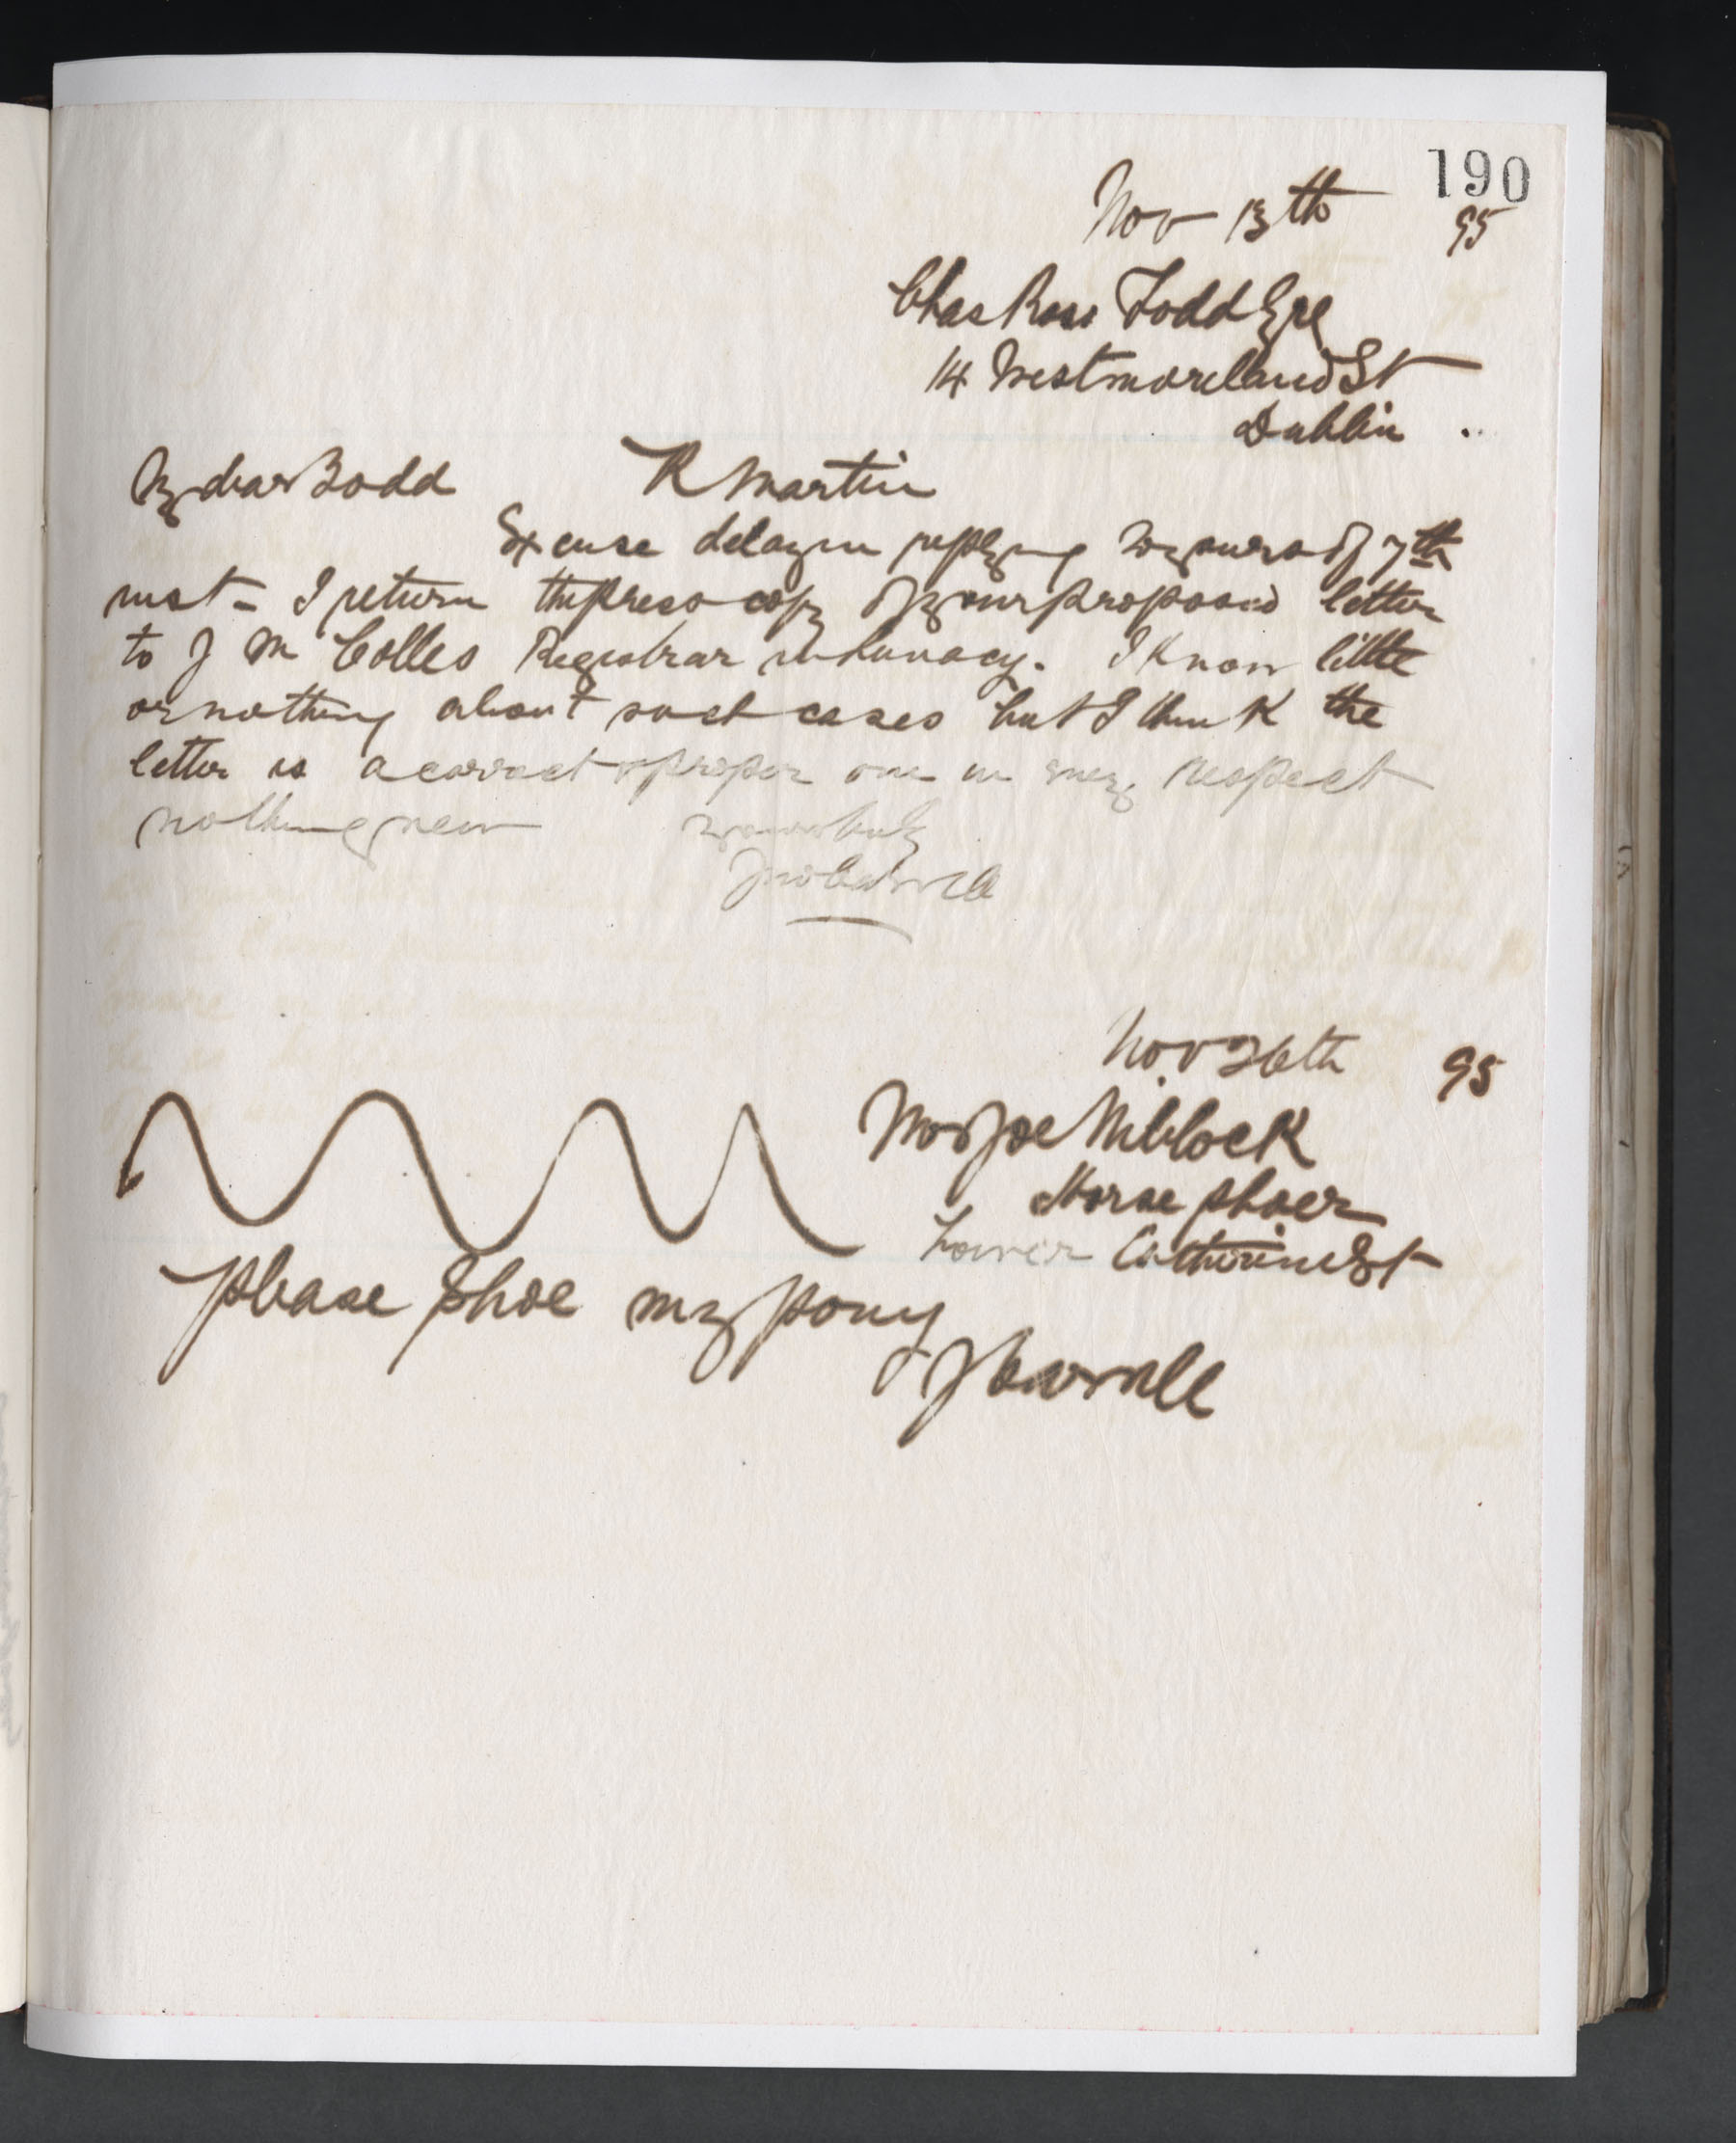 190
Nov 13th 95
Chas Ross Todd Esq
14 Westmoreland St
Dublin
My dear Todd R Martin
Excuse delay in replying to yours of 7th
inst - I return the press copy of your proposed letter
to J M Colles Registrar in Lunacy. I know little
or nothing about such cases but I think the
letter is a correct & proper one in every respect
nothing new yours truly
Nov 26th 95
Mr Joe Niblock
Horse shoer
Lower Catherine St
Please Shoe my pony